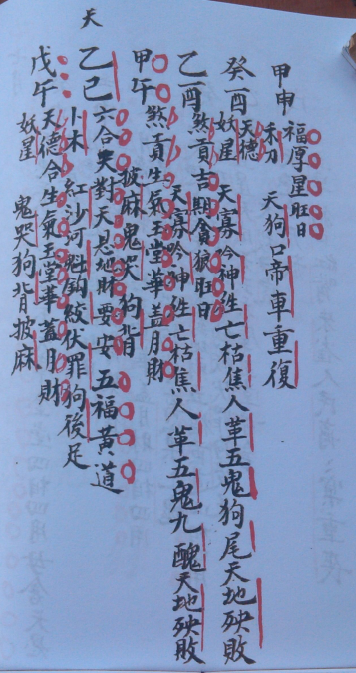 天
甲申 福厚星旺日
禾刀 天狗口帝車重復
癸酉 天德
妖星 天寡吟神往亡枯焦人革五鬼狗尾天地殃敗
乙酉 煞貢吉期貪狼旺日
天寡吟神往亡枯焦人革五鬼九醜天地殃敗
甲午 煞貢生氣玉堂華盖月財
披麻鬼哭狗背
乙巳 六合天對天恩地財要安五福黃道
卜木 紅沙河魁鈎絞伏罪狗後足
戊午 天德合生氣玉堂華盖月財
妖星 鬼哭狗背披麻